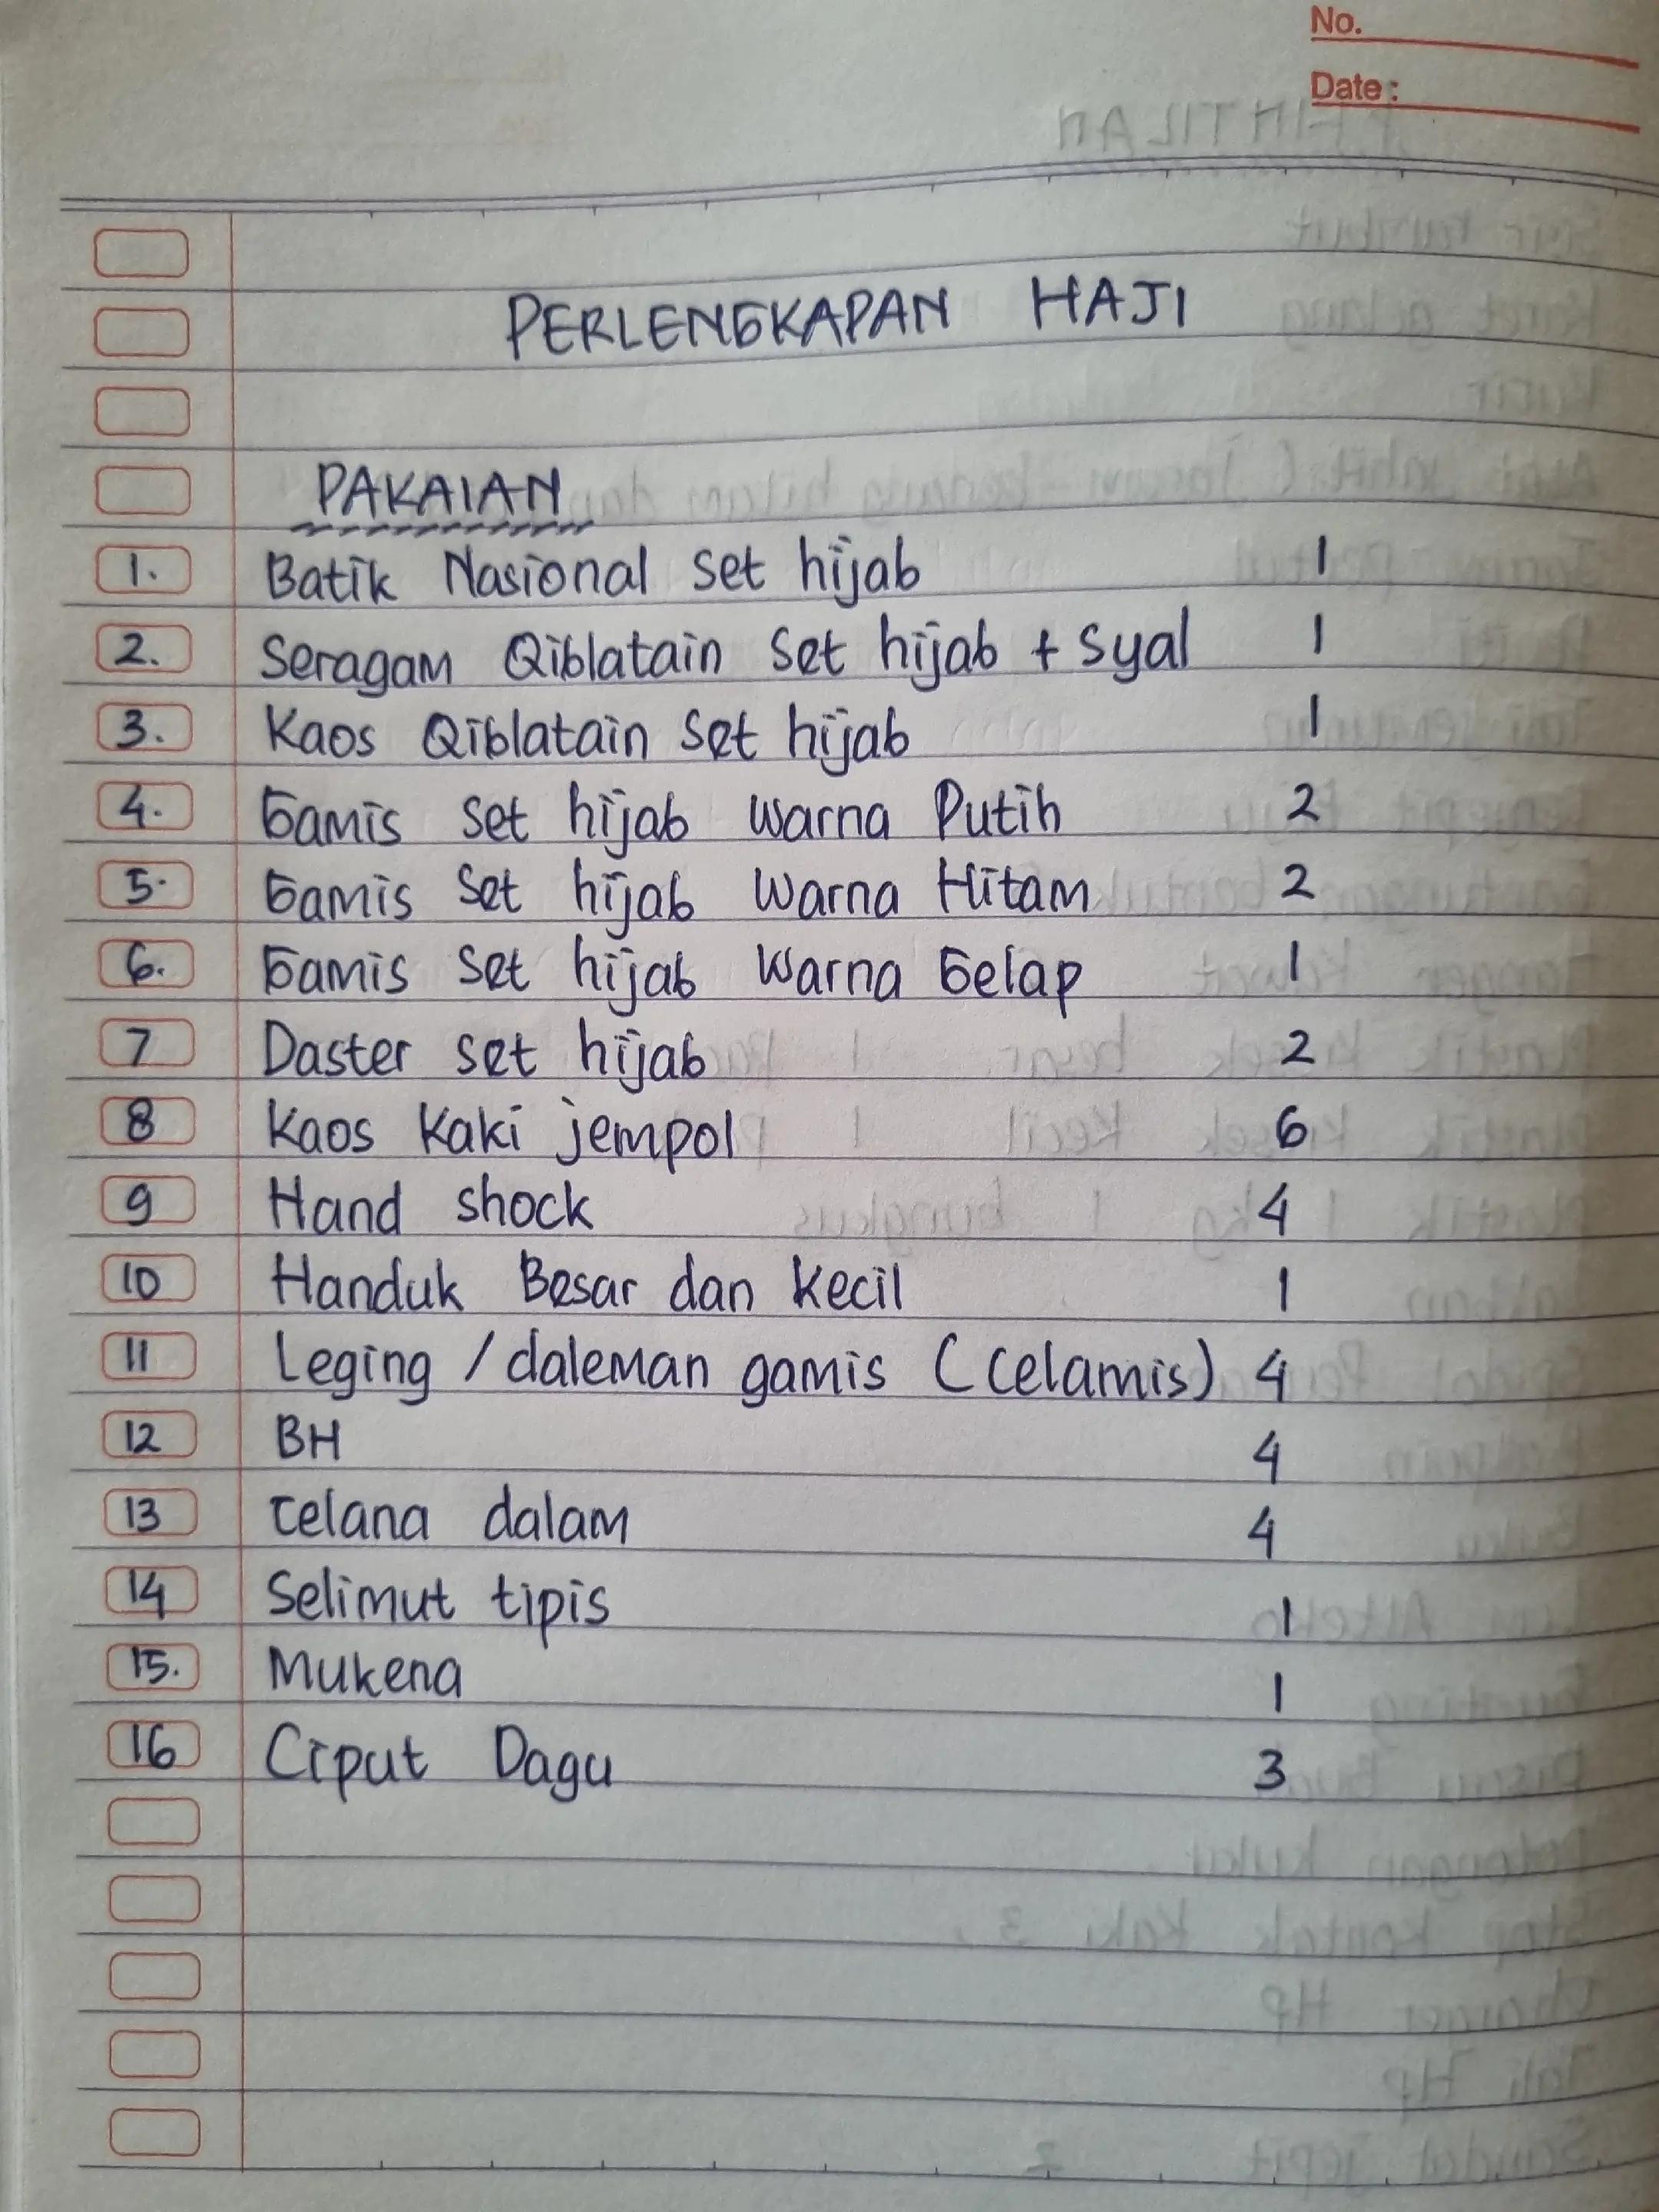 No.
Date:
PERLENGKAPAN HAJI
PAKAIAN
1. Batik Nasional set hijab 1
2. Seragam Qiblatain set hijab + syal 1
3. Kaos Qiblatain set hijab 1
4. Gamis set hijab warna Putih 2
5. Gamis set hijab warna Hitam 2
6. Gamis set hijab warna Gelap 1
7 Daster set hijab 2
8 Kaos Kaki jempol 6
9 Hand shock 4
10 Handuk Besar dan Kecil 1
11 Leging / daleman gamis (Celamis) 4
12 BH 4
13 Celana dalam 4
14 Selimut tipis 1
15. Mukena 1
16 Ciput Dagu 3